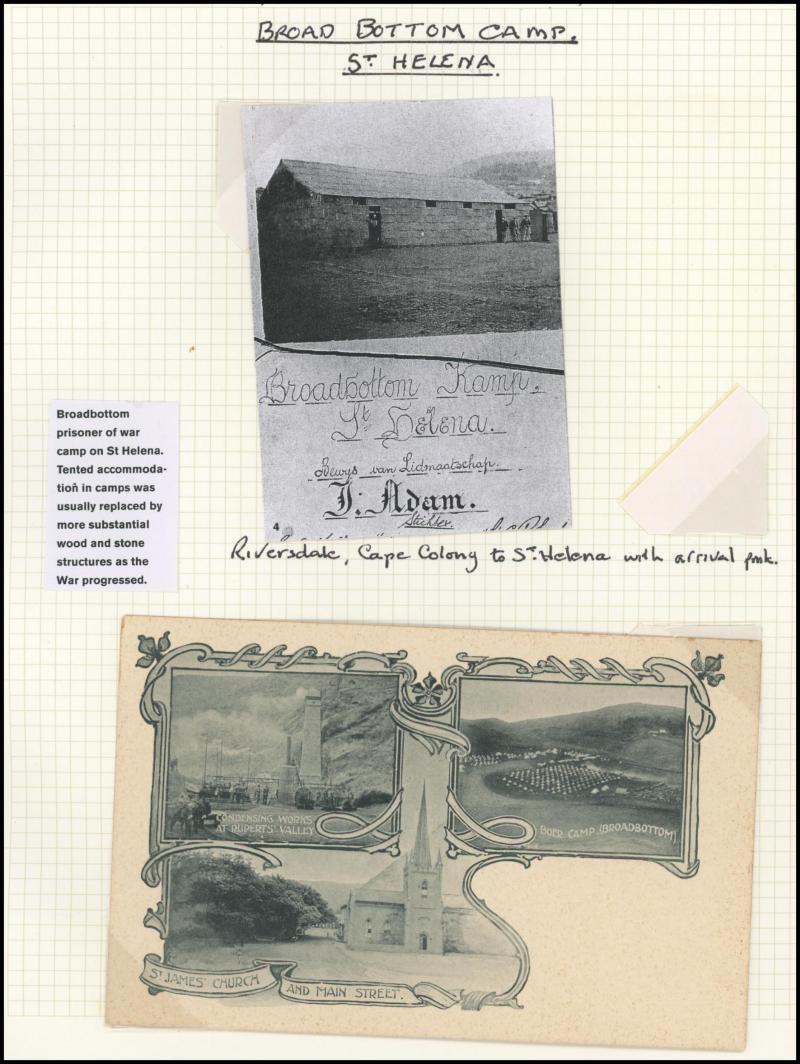 BROAD BOTTOM CAMP.
ST HELENA.
Broadbottom Kamp.
St Helena.
Bewys van Lidmaatschap.
J. Adam.
Stichter.
4
Broadbottom
prisoner of war
camp on St Helena.
Tented accommoda-
tion in camps was
usually replaced by
more substantial
wood and stone
structures as the
War progressed.
Riversdale, Cape Colony to St. Helena with arrival pmk.
CONDENSING WORKS
AT RUPERTS' VALLEY
BOER CAMP. (BROADBOTTOM)
ST JAMES' CHURCH
AND MAIN STREET.